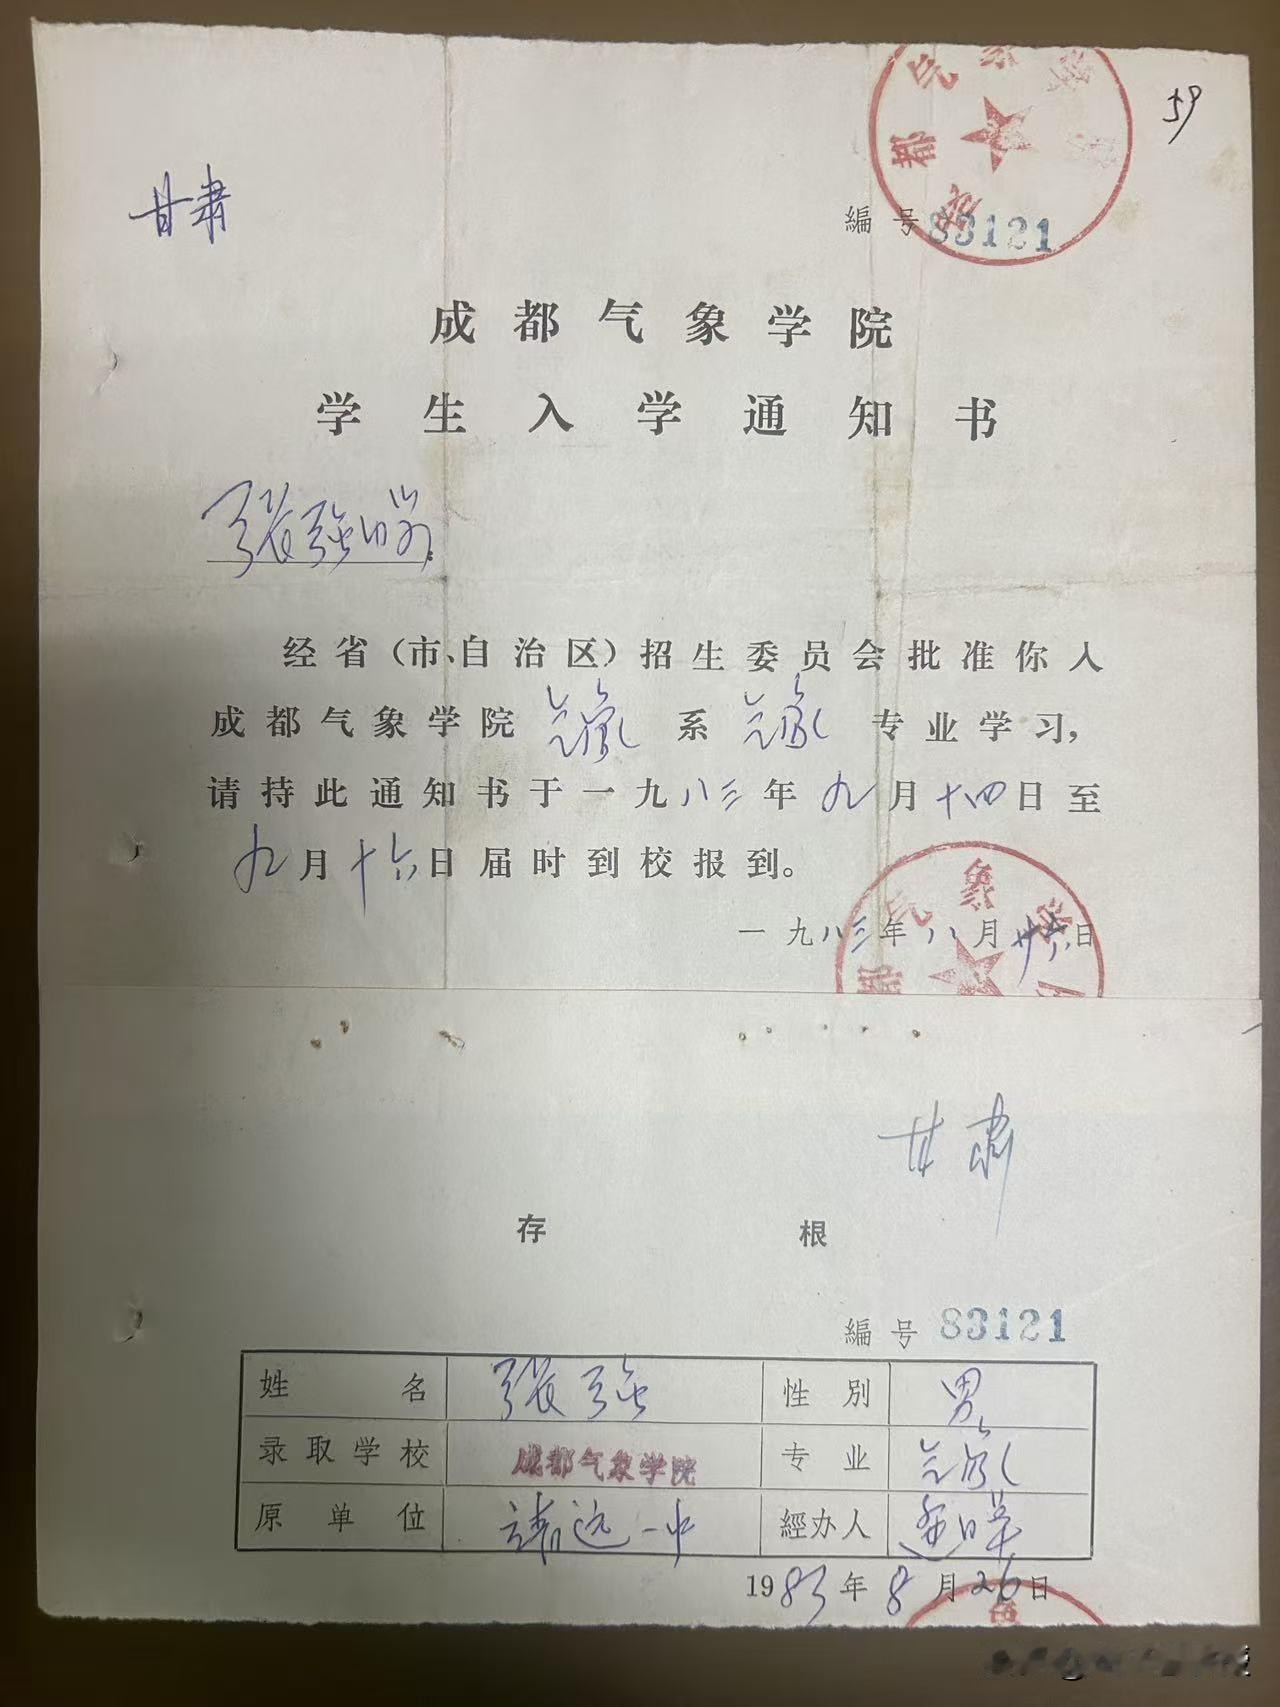 59
甘肃
編号83121
成都气象学院
学生入学通知书
张强同学:
经省(市、自治区)招生委员会批准你入
成都气象学院气象系气象专业学习,
请持此通知书于一九八三年九月十四日至
九月十六日届时到校报到。
一九八三年八月廿六日
甘肃
存根
編号 83121
姓名 张强 性別 男
录取学校 成都气象学院 专业 气象
原单位 靖远一中 經办人
1983年8月26日